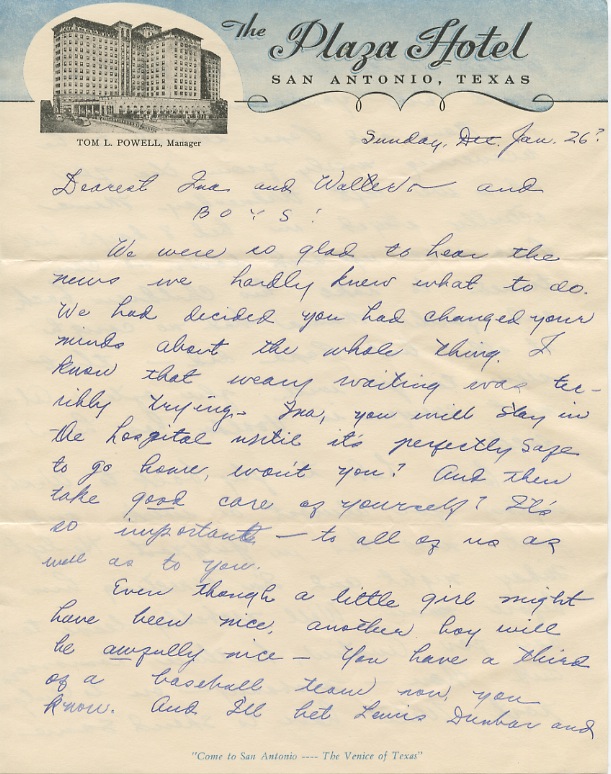 The Plaza Hotel
SAN ANTONIO, TEXAS
TOM L. POWELL, Manager
Sunday, Dec. Jan. 26?
Dearest Ina and Walter and
BOYS!
We were so glad to hear the
news we hardly knew what to do.
We had decided you had changed your
minds about the whole thing. I
know that weary waiting was ter-
ribly trying. Ina, you will stay in
the hospital until it's perfectly safe
to go home, won't you? And then
take good care of yourself? It's
so important — to all of us as
well as to you.
Even though a little girl might
have been nice, another boy will
be awfully nice — You have a third
of a baseball team now, you
know. And I'll bet Lewis Dunbar and
"Come to San Antonio ---- The Venice of Texas"